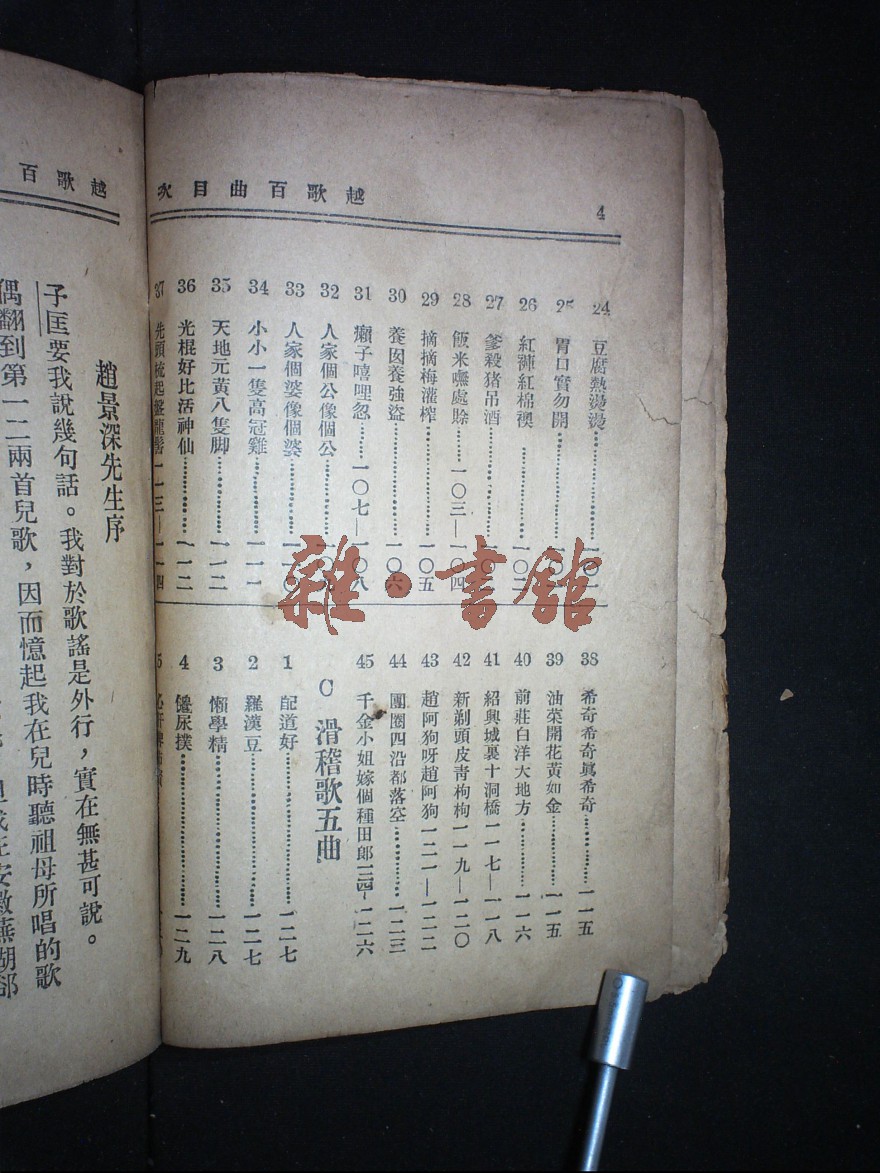 越歌百曲目次
4
24 豆腐熱燙燙………一〇一
25 胃口實勿開………一〇
26 紅褲紅棉襖………一〇二
27 爹殺猪吊酒………一〇
28 飯米囌處賒………一〇三—一〇四
29 摘摘梅灌榨………一〇五
30 養囡養強盜………一〇六
31 癩子嘻哩忽………一〇七—一〇八
32 人家個公像個公………一〇九
33 人家個婆像個婆………一一〇
34 小小一隻高冠雞………一一一
35 天地元黃八隻脚………一一二
36 光棍好比活神仙………一一二
37 先頭梳起盤龍髻一一三—一一四
38 希奇希奇眞希奇………一一五
39 油菜開花黃如金………一一五
40 前莊白洋大地方………一一六
41 紹興城裏十洞橋一一七—一一八
42 新剃頭皮靑枸枸一一九—一二〇
43 趙阿狗呀趙阿狗一二一—一二二
44 團圈四沿都落空………一二三
45 千金小姐嫁個種田郎一二四-一二六
C 滑稽歌五曲
1 配道好………一二七
2 羅漢豆………一二七
3 懶學精………一二八
4 儍尿撲………一二九
5
越歌百
趙景深先生序
子匡要我說幾句話。我對於歌謠是外行，實在無甚可說。
偶翻到第一二兩首兒歌，因而憶起我在兒時聽祖母所唱的歌
在安徽蕪湖郤
雜·書館